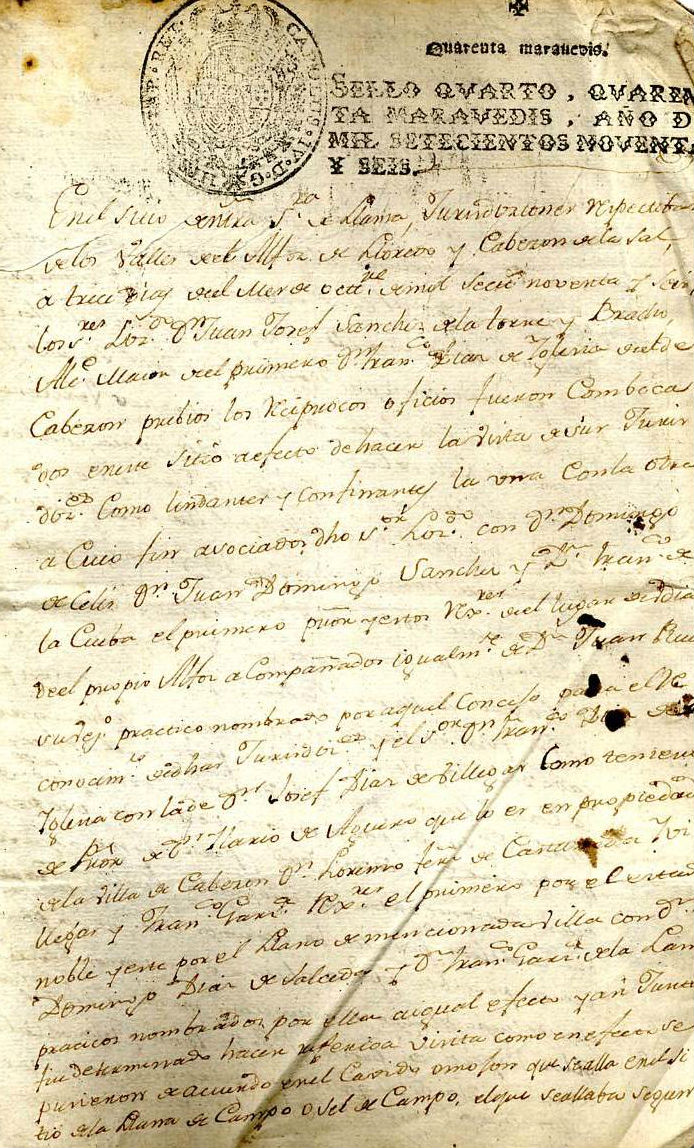 CAROLUS IV D. G. HISP REX
Quarenta maravedis.
SELLO QVARTO, QVAREN
TA MARAVEDIS, AÑO D
MIL SETECIENTOS NOVENTA
Y SEIS.
En el sitio de ntra Sra de Llama, Jurisdiciones respectibas
de los Valles del Alfoz de Lloredo y Cabezon de la Sal
a trece dias del Mes de octre de mil setecs noventa y seis
los Sres Dn Juan Josef Sanchez de la torre y
Mr del primero Dn Franco Diaz de Iglesia del de
Cabezon prebios los reciprocos oficios fueron Comboca
dos en este sitio a efecto de hacer la Vista de sus Juris
Como lindantes y Confinantes la una Con la otra
a Cuio fin asociados, dho Sor con Dn Domingo
de Celis Dn Juan Domingo Sanchez y Dn Franco de
la Cueba el primero y estos Rexres del lugar de
del propio Alfoz a Compañados igualmte de Dn Juan Rui
practico nombrado por aquel Concejo para el Re
conocimto de dhas y el Sor Dn Franco Diaz de la
Iglesia con la de Dn Josef Diaz de Villegas Como teniente
de Dn Ilario de Aguero que lo es en propiedad
de la Villa de Cabezon Dn Lorenzo de Vi
llegas y Franco Rexres el primero por el estado
noble y este por el Llano de mencionada Villa con Dn
Domingo Diaz de Salceda y Dn Franco de la
practicos nombrados por ella a igual efecto y asi Juntos
fue determinado hacer referida Visita como en efecto se
pusieron de acuerdo en el omojon que se alla en el si
tio de la Llana de Campo o Sel de Campo, el que se allaba segun